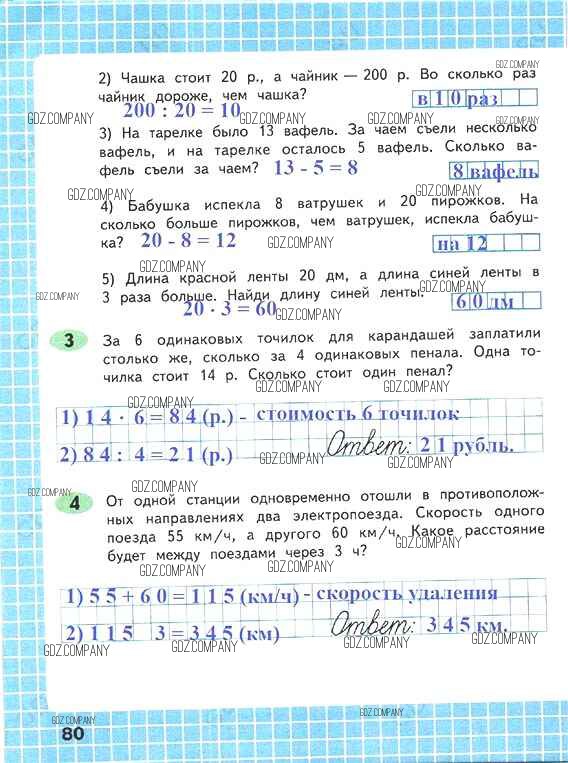 GDZ.COMPANY
2) Чашка стоит 20 р., а чайник — 200 р. Во сколько раз
чайник дороже, чем чашка?
в 10 раз
200 : 20 = 10
GDZ.COMPANY GDZ.COMPANY GDZ.COMPANY
3) На тарелке было 13 вафель. За чаем съели несколько
вафель, и на тарелке осталось 5 вафель. Сколько ва-
фель съели за чаем? 13 - 5 = 8
8 вафель
GDZ.COMPANY GDZ.COMPANY GDZ.COMPANY
4) Бабушка испекла 8 ватрушек и 20 пирожков. На
сколько больше пирожков, чем ватрушек, испекла бабуш-
ка? 20 - 8 = 12 GDZ.COMPANY на 12 GDZ.COMPANY
GDZ.COMPANY
5) Длина красной ленты 20 дм, а длина синей ленты в
3 раза больше. Найди длину синей ленты.
60 дм
GDZ.COMPANY
20 · 3 = 60 GDZ.COMPANY
3 За 6 одинаковых точилок для карандашей заплатили
столько же, сколько за 4 одинаковых пенала. Одна то-
чилка стоит 14 р. Сколько стоит один пенал?
GDZ.COMPANY GDZ.COMPANY
1) 14 · 6 = 84 (р.) - стоимость 6 точилок
GDZ.COMPANY
2) 84 : 4 = 21 (р.) Ответ: 21 рубль.
GDZ.COMPANY GDZ.COMPANY
GDZ.COMPANY GDZ.COMPANY
4 От одной станции одновременно отошли в противополож-
ных направлениях два электропоезда. Скорость одного
поезда 55 км/ч, а другого 60 км/ч. Какое расстояние
будет между поездами через 3 ч?
GDZ.COMPANY GDZ.COMPANY
GDZ.COMPANY
1) 55 + 60 = 115 (км/ч) - скорость удаления
2) 115 3 = 345 (км) Ответ: 345 км.
GDZ.COMPANY GDZ.COMPANY GDZ.COMPANY
GDZ.COMPANY GDZ.COMPANY
80